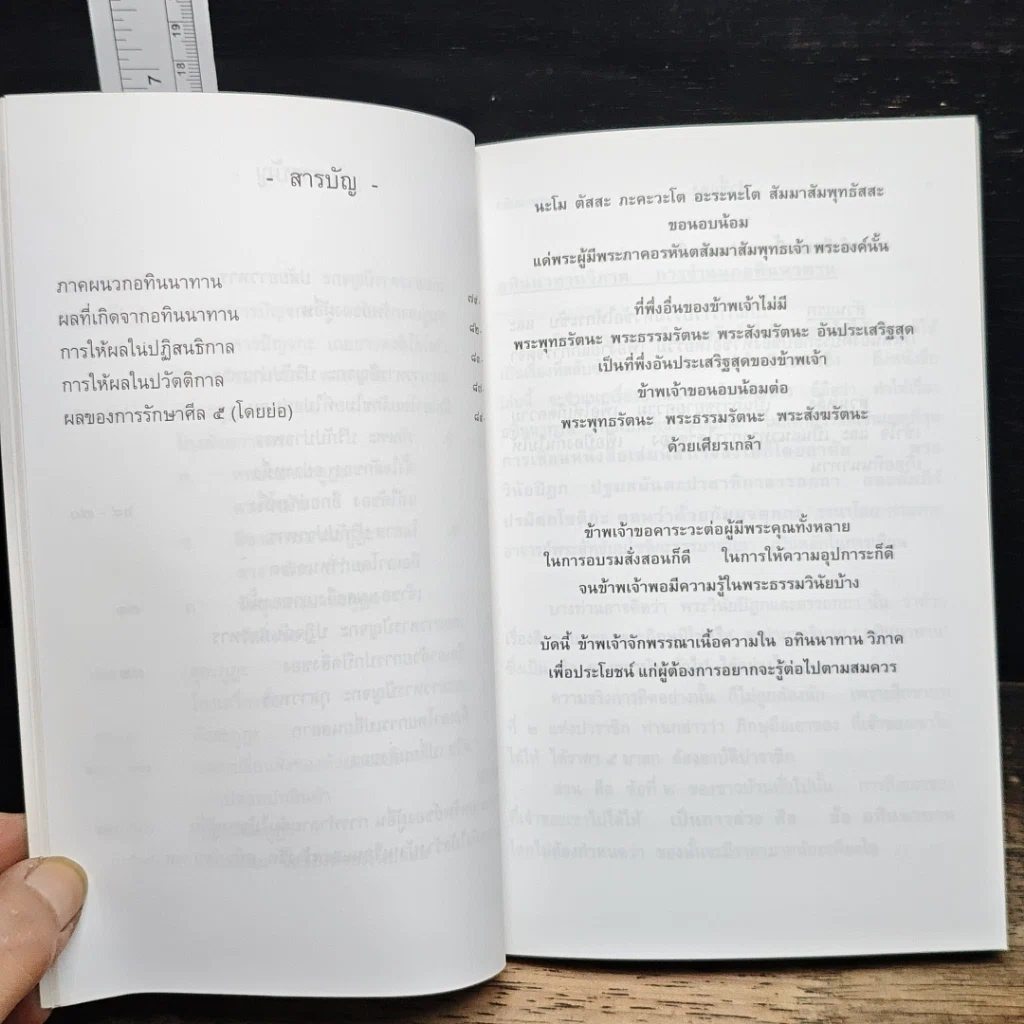 - สารบัญ -
ภาคผนวกอทินนาทาน
ผลที่เกิดจากอทินนาทาน
การให้ผลในปฏิสนธิกาล
การให้ผลในปวัตติกาล
ผลของการรักษาศีล ๕ (โดยย่อ)
นะโม ตัสสะ ภะคะวะโต อะระหะโต สัมมาสัมพุทธัสสะ
ขอนอบน้อม
แด่พระผู้มีพระภาคอรหันตสัมมาสัมพุทธเจ้า พระองค์นั้น
ที่พึ่งอื่นของข้าพเจ้าไม่มี
พระพุทธรัตนะ พระธรรมรัตนะ พระสังฆรัตนะ อันประเสริฐสุด
เป็นที่พึ่งอันประเสริฐสุดของข้าพเจ้า
ข้าพเจ้าขอนอบน้อมต่อ
พระพุทธรัตนะ พระธรรมรัตนะ พระสังฆรัตนะ
ด้วยเศียรเกล้า
ข้าพเจ้าขอคาระวะต่อผู้มีพระคุณทั้งหลาย
ในการอบรมสั่งสอนก็ดี ในการให้ความอุปการะก็ดี
จนข้าพเจ้าพอมีความรู้ในพระธรรมวินัยบ้าง
บัดนี้ ข้าพเจ้าจักพรรณาเนื้อความใน อทินนาทาน วิภาค
เพื่อประโยชน์ แก่ผู้ต้องการอยากจะรู้ต่อไปตามสมควร
7
19
18